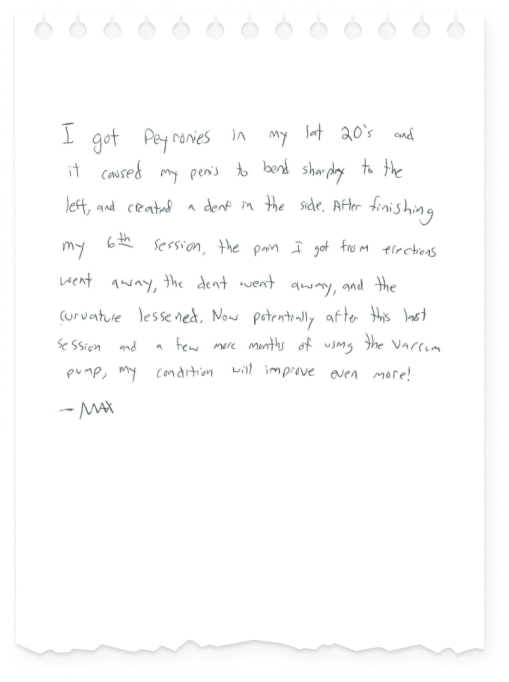 I got Peyronies in my lat 20's and
it caused my penis to bend sharpley to the
left, and created a dent in the side. After finishing
my 6th session, the pain I got from erections
went away, the dent went away, and the
curvature lessened. Now potentially after this last
session and a few more months of using the Vaccum
pump, my condition will improve even more!
- MAX